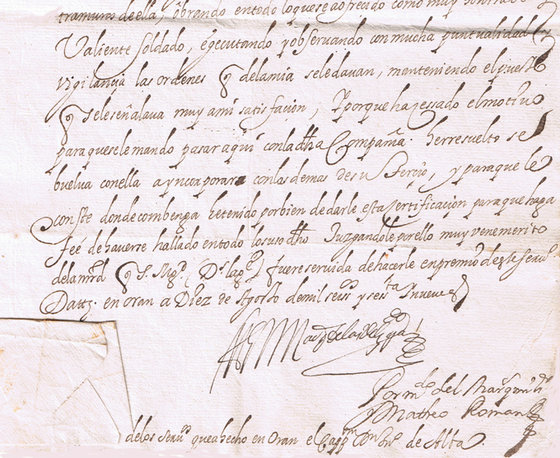 tramuros de ella, obrando en todo lo que se a ofreçido como muy honrrado
Valiente soldado, egecutando y observando con mucha puntualidad y
vigilançia las ordenes q de la mia se le davan, manteniendo el puesto
q se le señalava muy a mi satisfaçion; Y porque ha çessado el motivo
para que se le mando pasar aqui con la dha Compañia. He rresuelto se
buelva con ella a yncorporar con los demas de su Terçio, y para que le
conste donde combenga he tenido por bien de darle esta çertificaçion para que haga
fee de haverse hallado en todo lo susodho Juzgandole por ello muy venemerito
de la mrd q S. Mgd. (Ds. le gde) fuere servido de hacerle en premio de sus servs.
Datz. en oran a Diez de Agosto de mil seiss y sesta y nueve
El Marqs de los Velez
Por mdo del Marqs mi sr
Mattheo Roman
de los servs que a hecho en Oran el Cappn Don de Alta.